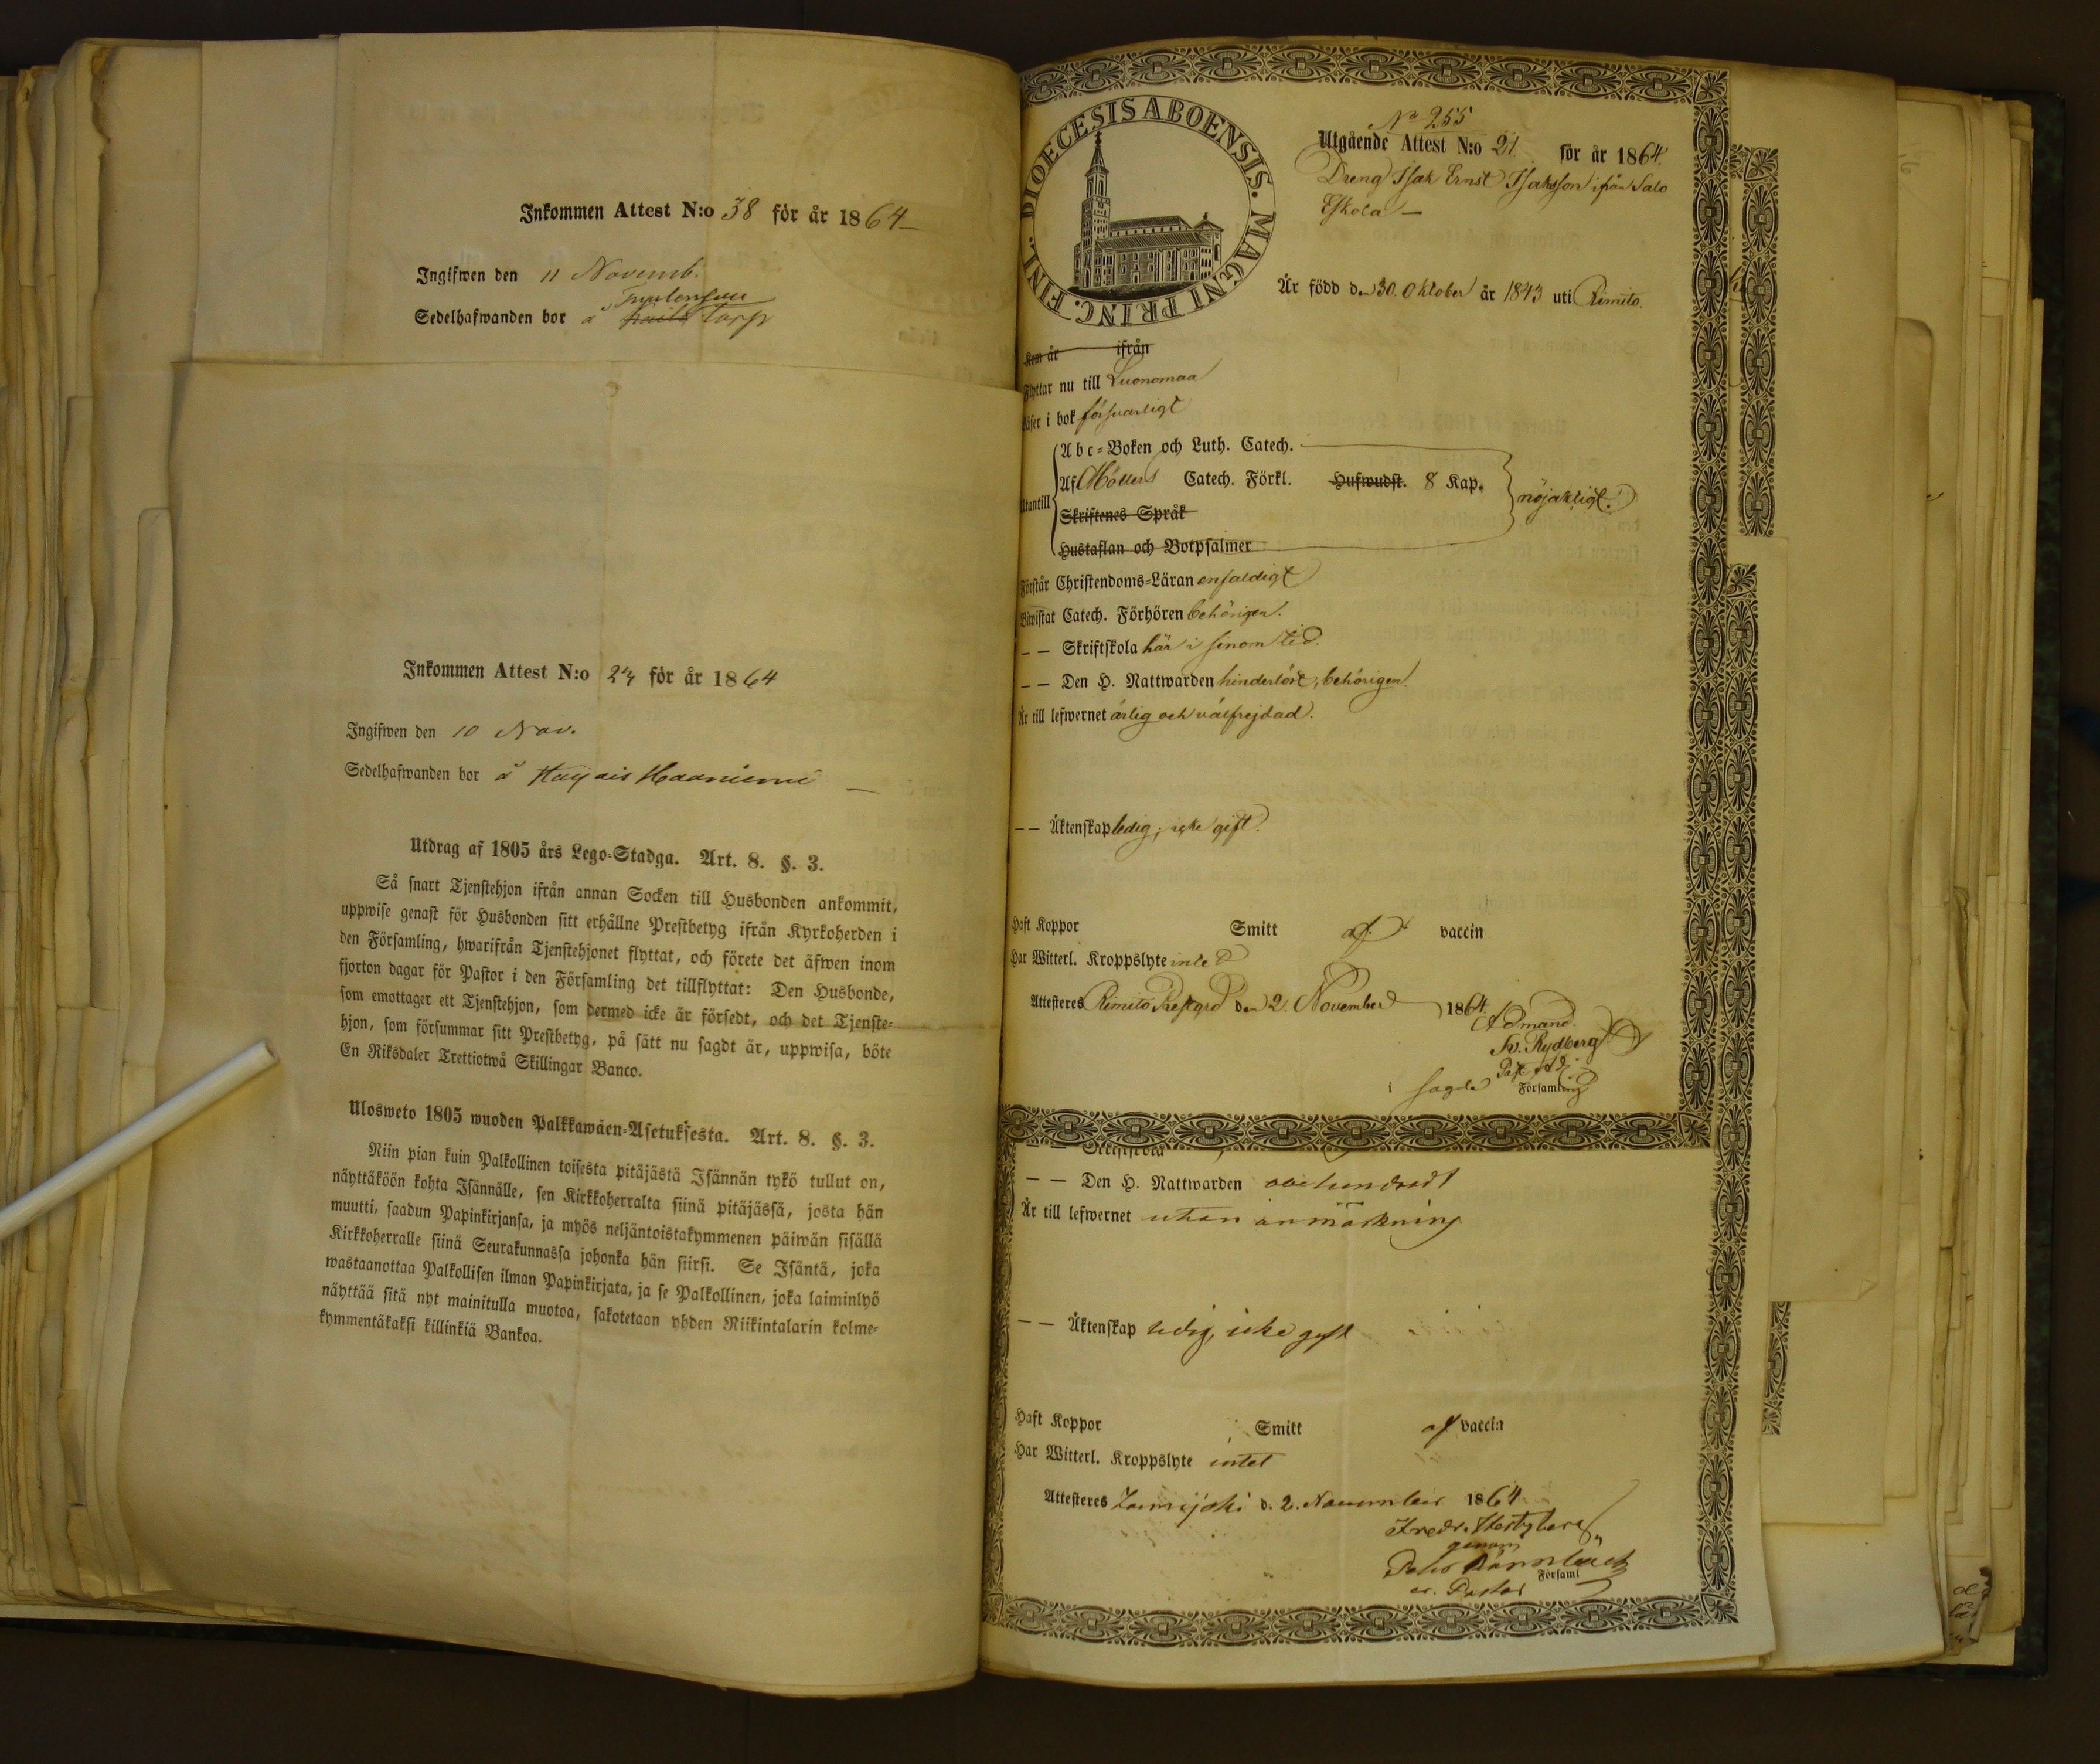 Inkommen Attest N:o 38 för år 1864
Ingifwen den 11 Novemb.
Sedelhafwanden bor å torp
Inkommen Attest N:o 23 för år 1864
Ingifwen den 10 Nov.
Sedelhafwanden bor å Haijais Haaniemi
Utdrag af 1805 års Lego-Stadga. Art. 8. §. 3.
Så snart Tjenstehjon ifrån annan Socken till Husbonden ankommit,
uppwise genast för Husbonden sitt erhållne Prestbetyg ifrån Kyrkoherden i
den Församling, hwarifrån Tjenstehjonet flyttat, och förete det äfwen inom
fjorton dagar för Pastor i den Församling det tillflyttat: Den Husbonde,
som emottager ett Tjenstehjon, som dermed icke är försedt, och det Tjenste-
hjon, som försummar sitt Prestbetyg, på sätt nu sagdt är, uppwisa, böte
En Riksdaler Trettiotwå Skillingar Banco.
Ulosweto 1805 wuoden Palkkawäen-Asetuksesta. Art. 8. §. 3.
Niin pian kuin Palkollinen toisesta pitäjästä Isännän tykö tullut on,
näyttäköön kohta Isännälle, sen Kirkkoherralta siinä pitäjässä, josta hän
muutti, saadun Papinkirjansa, ja myös neljäntoistakymmenen päiwän sisällä
Kirkkoherralle siinä Seurakunnassa johonka hän siirsi. Se Isäntä, joka
wastaanottaa Palkollisen ilman Papinkirjata, ja se Palkollinen, joka laiminlyö
näyttää sitä nyt mainitulla muotoa, sakotetaan yhden Riikintalarin kolme-
kymmentäkaksi killinkiä Bankoa.
DIOECESIS ABOENSIS. MAGNI PRINC. FINL.
No 255
Utgående Attest N:o 21 för år 1864.
Dreng Isak Ernst Isaksson ifrån Salo
Eskola
Är född den 30. Oktober år 1843 uti Rimito.
Kom år ifrån
Flyttar nu till Luonomaa
Läser i bok försvarligt
Abc-Boken och Luth. Catech.
Utantill Af Möllers Catech. Förkl. Hufwudst. 8 Kap. nöjaktigt.
Skriftenes Språk
Hustaflan och Botpsalmer
Förstår Christendoms-Läran enfaldigt
Biwistat Catech. Förhören behörigen.
— — Skriftskola här i sinom tid.
— — Den H. Nattwarden hinderlöst, behörigen.
Är till lefwernet ärlig och välfrejdad.
— — Äktenskap ledig, icke gift.
Haft Koppor Smitt af vaccin
Har Witterl. Kroppslyte intet
Attesteres Rimito Prestgrd den 2. November 1864.
Admand.
Fr. Rydberg
i sagde Församling
— — Skriftskola
— — Den H. Nattwarden obehindradt
Är till lefwernet utan anmärkning
— — Äktenskap ledig, icke gift
Haft Koppor Smitt af vaccin
Har Witterl. Kroppslyte intet
Attesteres d. 2. November 1864
Fredr.
genom
Församl
Pastor